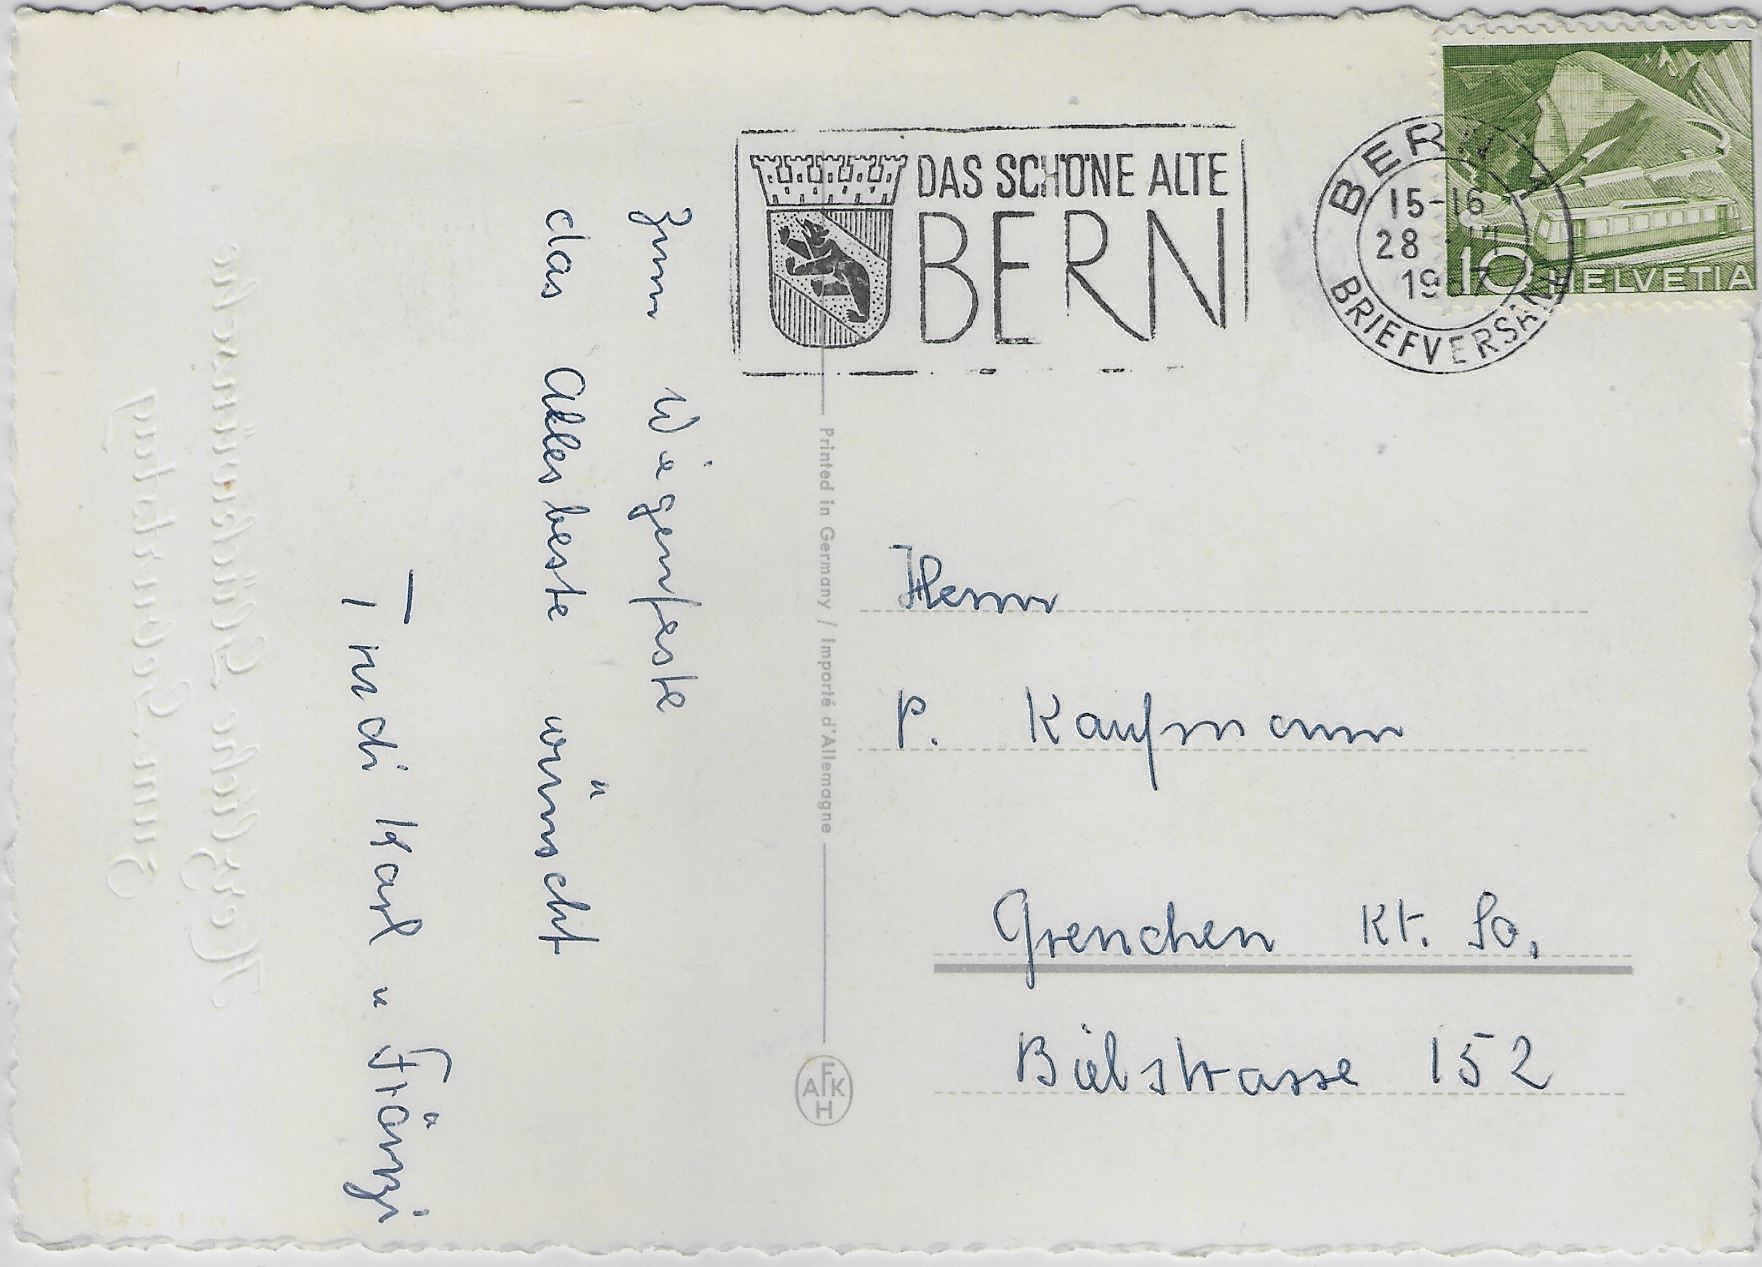 DAS SCHÖNE ALTE
BERN
BERN 1
15-16
28
BRIEFVERSAND
10 HELVETIA
Zum Wiegenfeste
das Allerbeste wünscht
Trudi Karl u Fränzi
Printed in Germany / Importé d'Allemagne
AFKH
Herrn
P. Kaufmann
Grenchen Kt. So.
Bielstrasse 152
Zum Geburtstag
herzlichen Glückwunsch